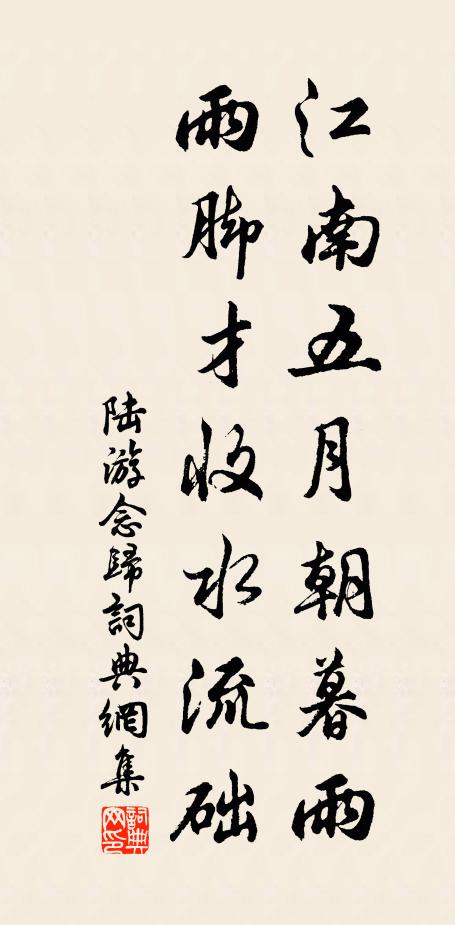 江南五月朝暮雨
雨脚才收水流础
陆游念歸詞典網集
詞典網印